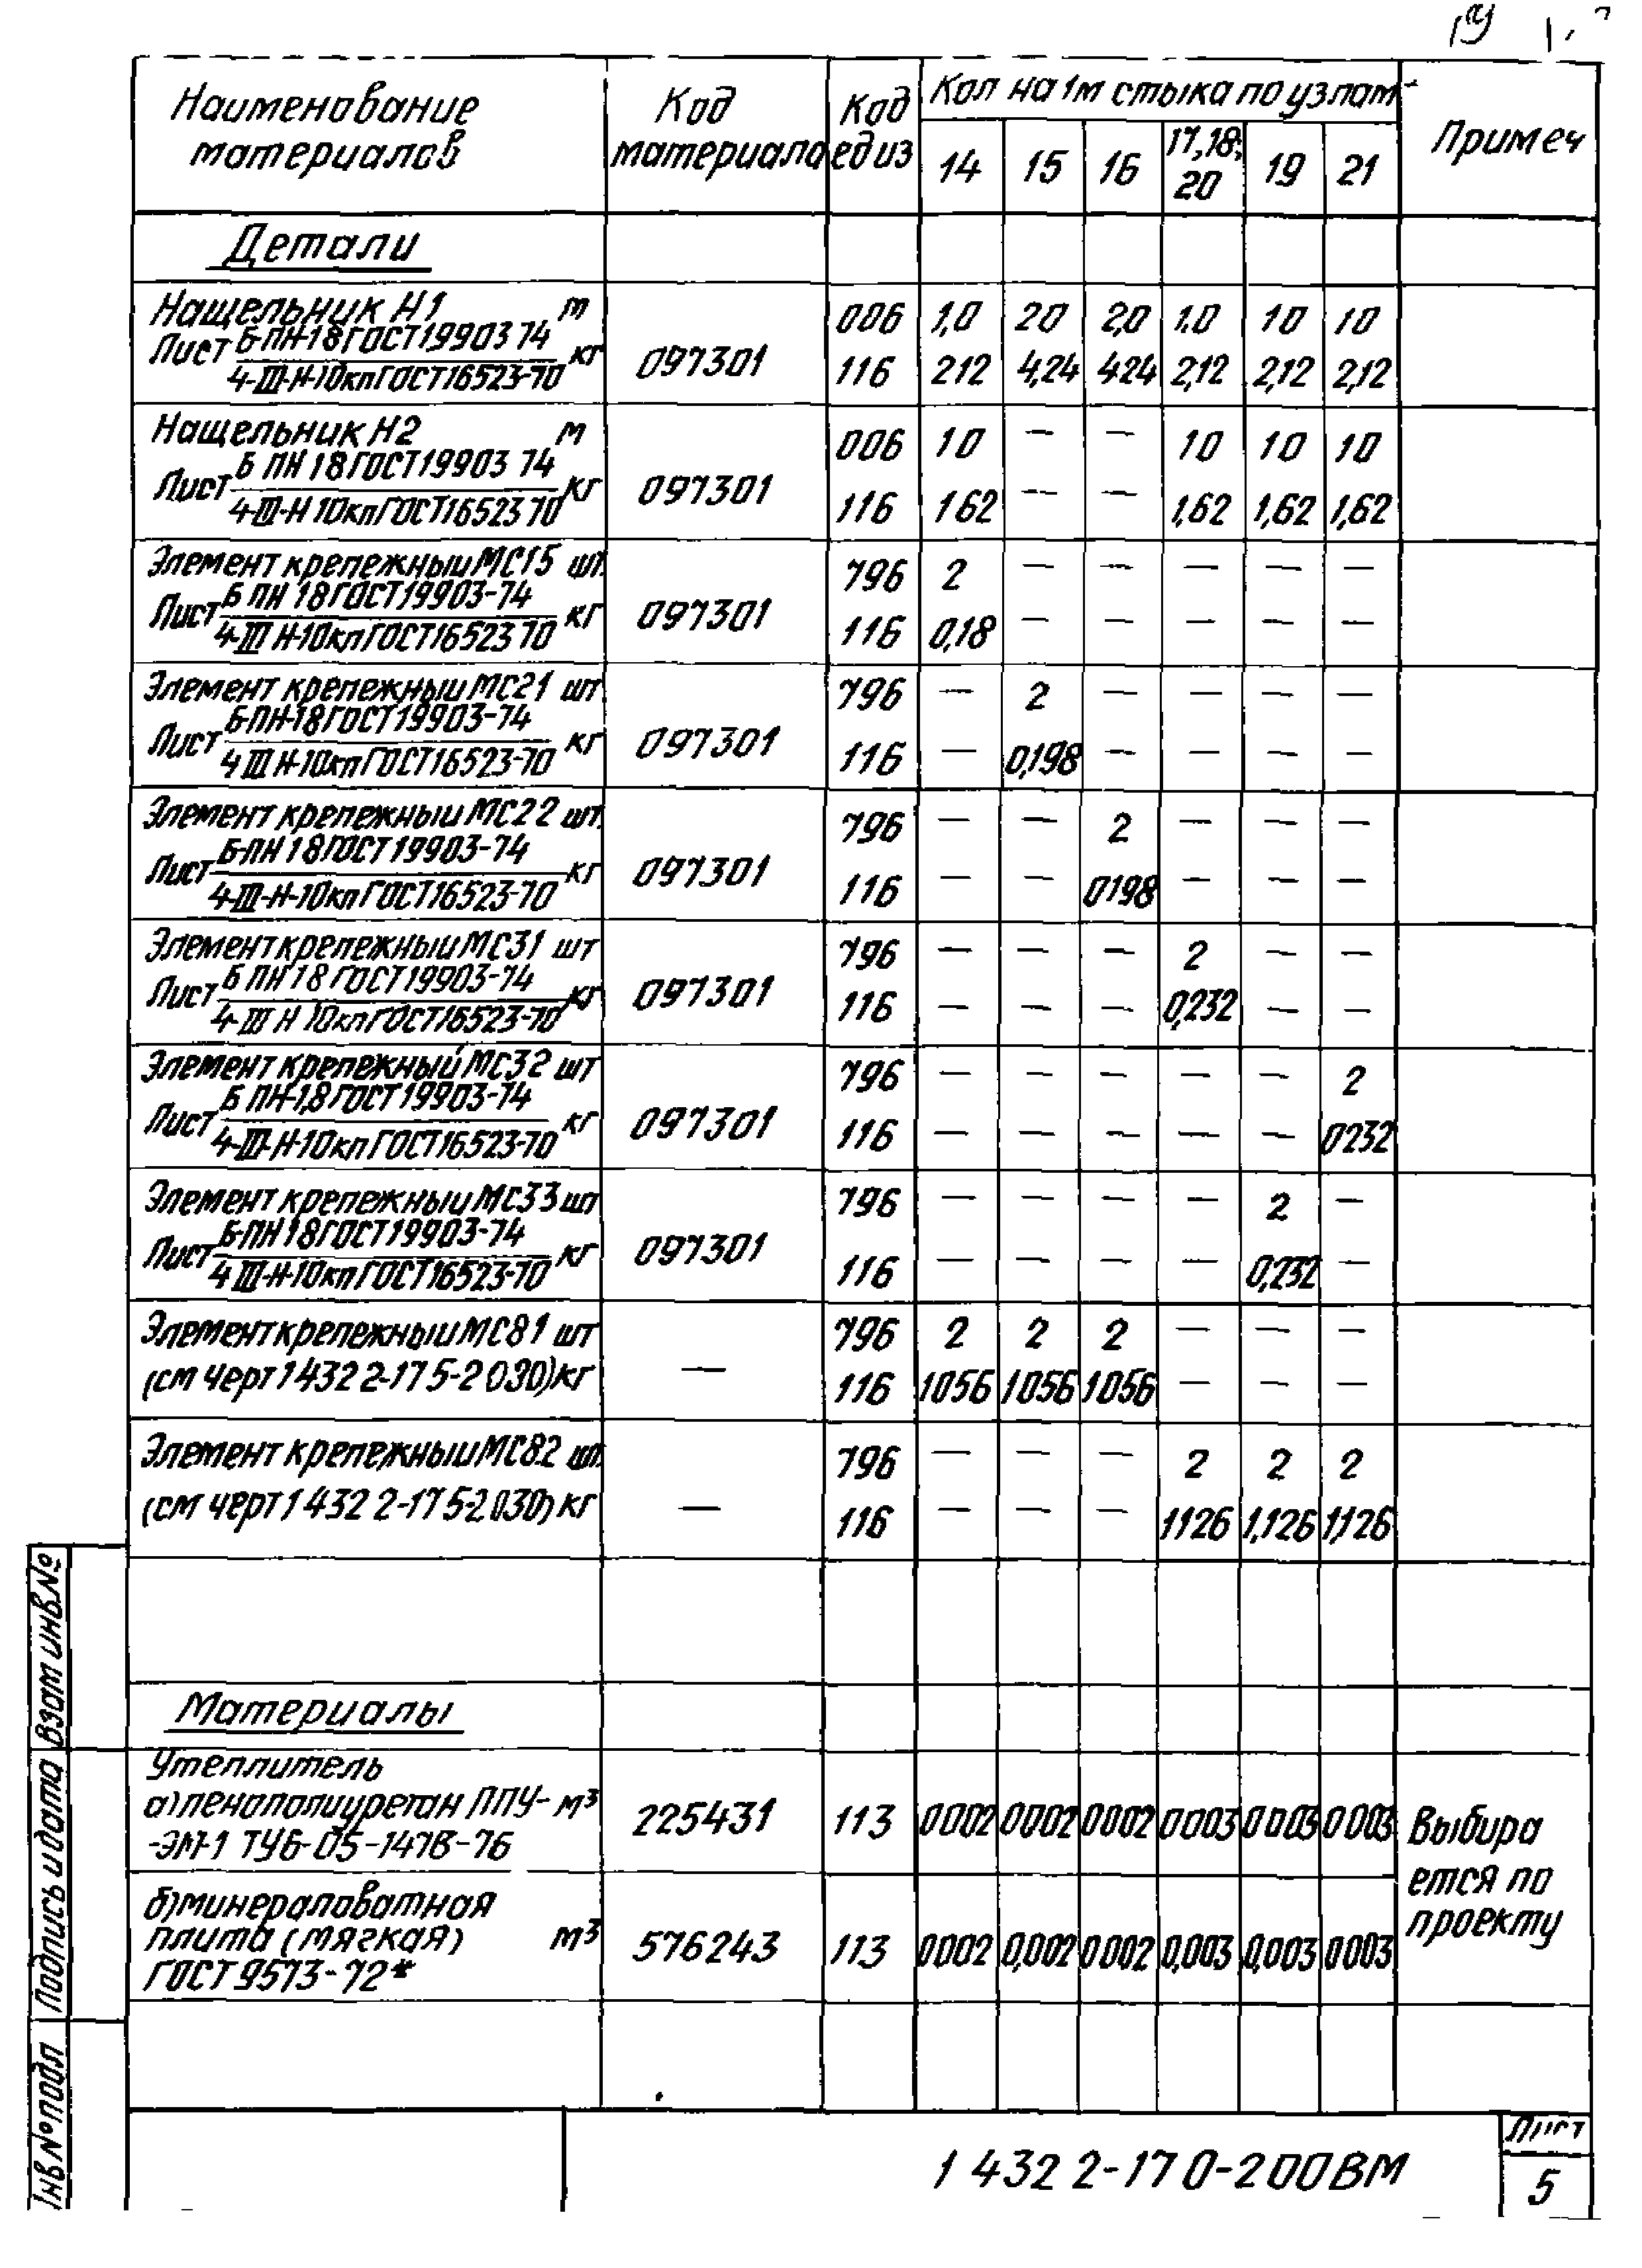 Наименование материалов | Код материала | Код ед из | Кол на 1м стыка по узлам | Примеч
14 | 15 | 16 | 17,18; 20 | 19 | 21
Детали
Нащельник Н1 м | 006 | 1,0 | 20 | 2,0 | 1.0 | 10 | 10
Лист Б-ПН-18 ГОСТ19903 74 / 4-III-Н-10кп ГОСТ16523-70 кг | 097301 | 116 | 212 | 4,24 | 424 | 2,12 | 2,12 | 2,12
Нащельник Н2 м | 006 | 10 | — | — | 10 | 10 | 10
Лист Б ПН 18 ГОСТ19903 74 / 4-III-Н 10кп ГОСТ16523 70 кг | 097301 | 116 | 162 | — | — | 1,62 | 1,62 | 1,62
Элемент крепежный МС15 шт. | 796 | 2 | — | — | — | — | —
Лист Б ПН 18 ГОСТ19903-74 / 4-III Н-10кп ГОСТ16523 70 кг | 097301 | 116 | 0,18 | — | — | — | — | —
Элемент крепежный МС21 шт. | 796 | — | 2 | — | — | — | —
Лист Б-ПН-18 ГОСТ19903-74 / 4 III Н-10кп ГОСТ16523-70 кг | 097301 | 116 | — | 0,198 | — | — | — | —
Элемент крепежный МС22 шт. | 796 | — | — | 2 | — | — | —
Лист Б-ПН 18 ГОСТ19903-74 / 4-III-Н-10кп ГОСТ16523-70 кг | 097301 | 116 | — | — | 0198 | — | — | —
Элемент крепежный МС31 шт | 796 | — | — | — | 2 | — | —
Лист Б ПН 18 ГОСТ19903-74 / 4-III Н 10кп ГОСТ16523-70 кг | 097301 | 116 | — | — | — | 0,232 | — | —
Элемент крепежный МС32 шт | 796 | — | — | — | — | — | 2
Лист Б ПН-1,8 ГОСТ19903-74 / 4-III-Н-10кп ГОСТ16523-70 кг | 097301 | 116 | — | — | — | — | — | 0232
Элемент крепежный МС33 шт | 796 | — | — | — | — | 2 | —
Лист Б-ПН 18 ГОСТ19903-74 / 4 III-Н-10кп ГОСТ16523-70 кг | 097301 | 116 | — | — | — | — | 0,232 | —
Элемент крепежный МС81 шт | 796 | 2 | 2 | 2 | — | — | —
(см черт 1 432 2-17 5-2 030) кг | — | 116 | 1056 | 1056 | 1056 | — | — | —
Элемент крепежный МС82 шт. | 796 | — | — | — | 2 | 2 | 2
(см черт 1 432 2-17 5-2 030) кг | — | 116 | — | — | — | 1126 | 1,126 | 1,126
Материалы
Утеплитель
а) пенополиуретан ППУ- м³ | 225431 | 113 | 0002 | 0002 | 0002 | 0003 | 0003 | 0003 | Выбира
-ЭМ-1 ТУ6-05-1478-76
ется по
б) минераловатная
плита (мягкая) м³ | 576243 | 113 | 0002 | 0,002 | 0002 | 0,003 | 0,003 | 0003 | проекту
ГОСТ 9573-72*
Взам инв.№
Подпись и дата
Инв № подл
1 432 2-17 0-200ВМ
Лист
5